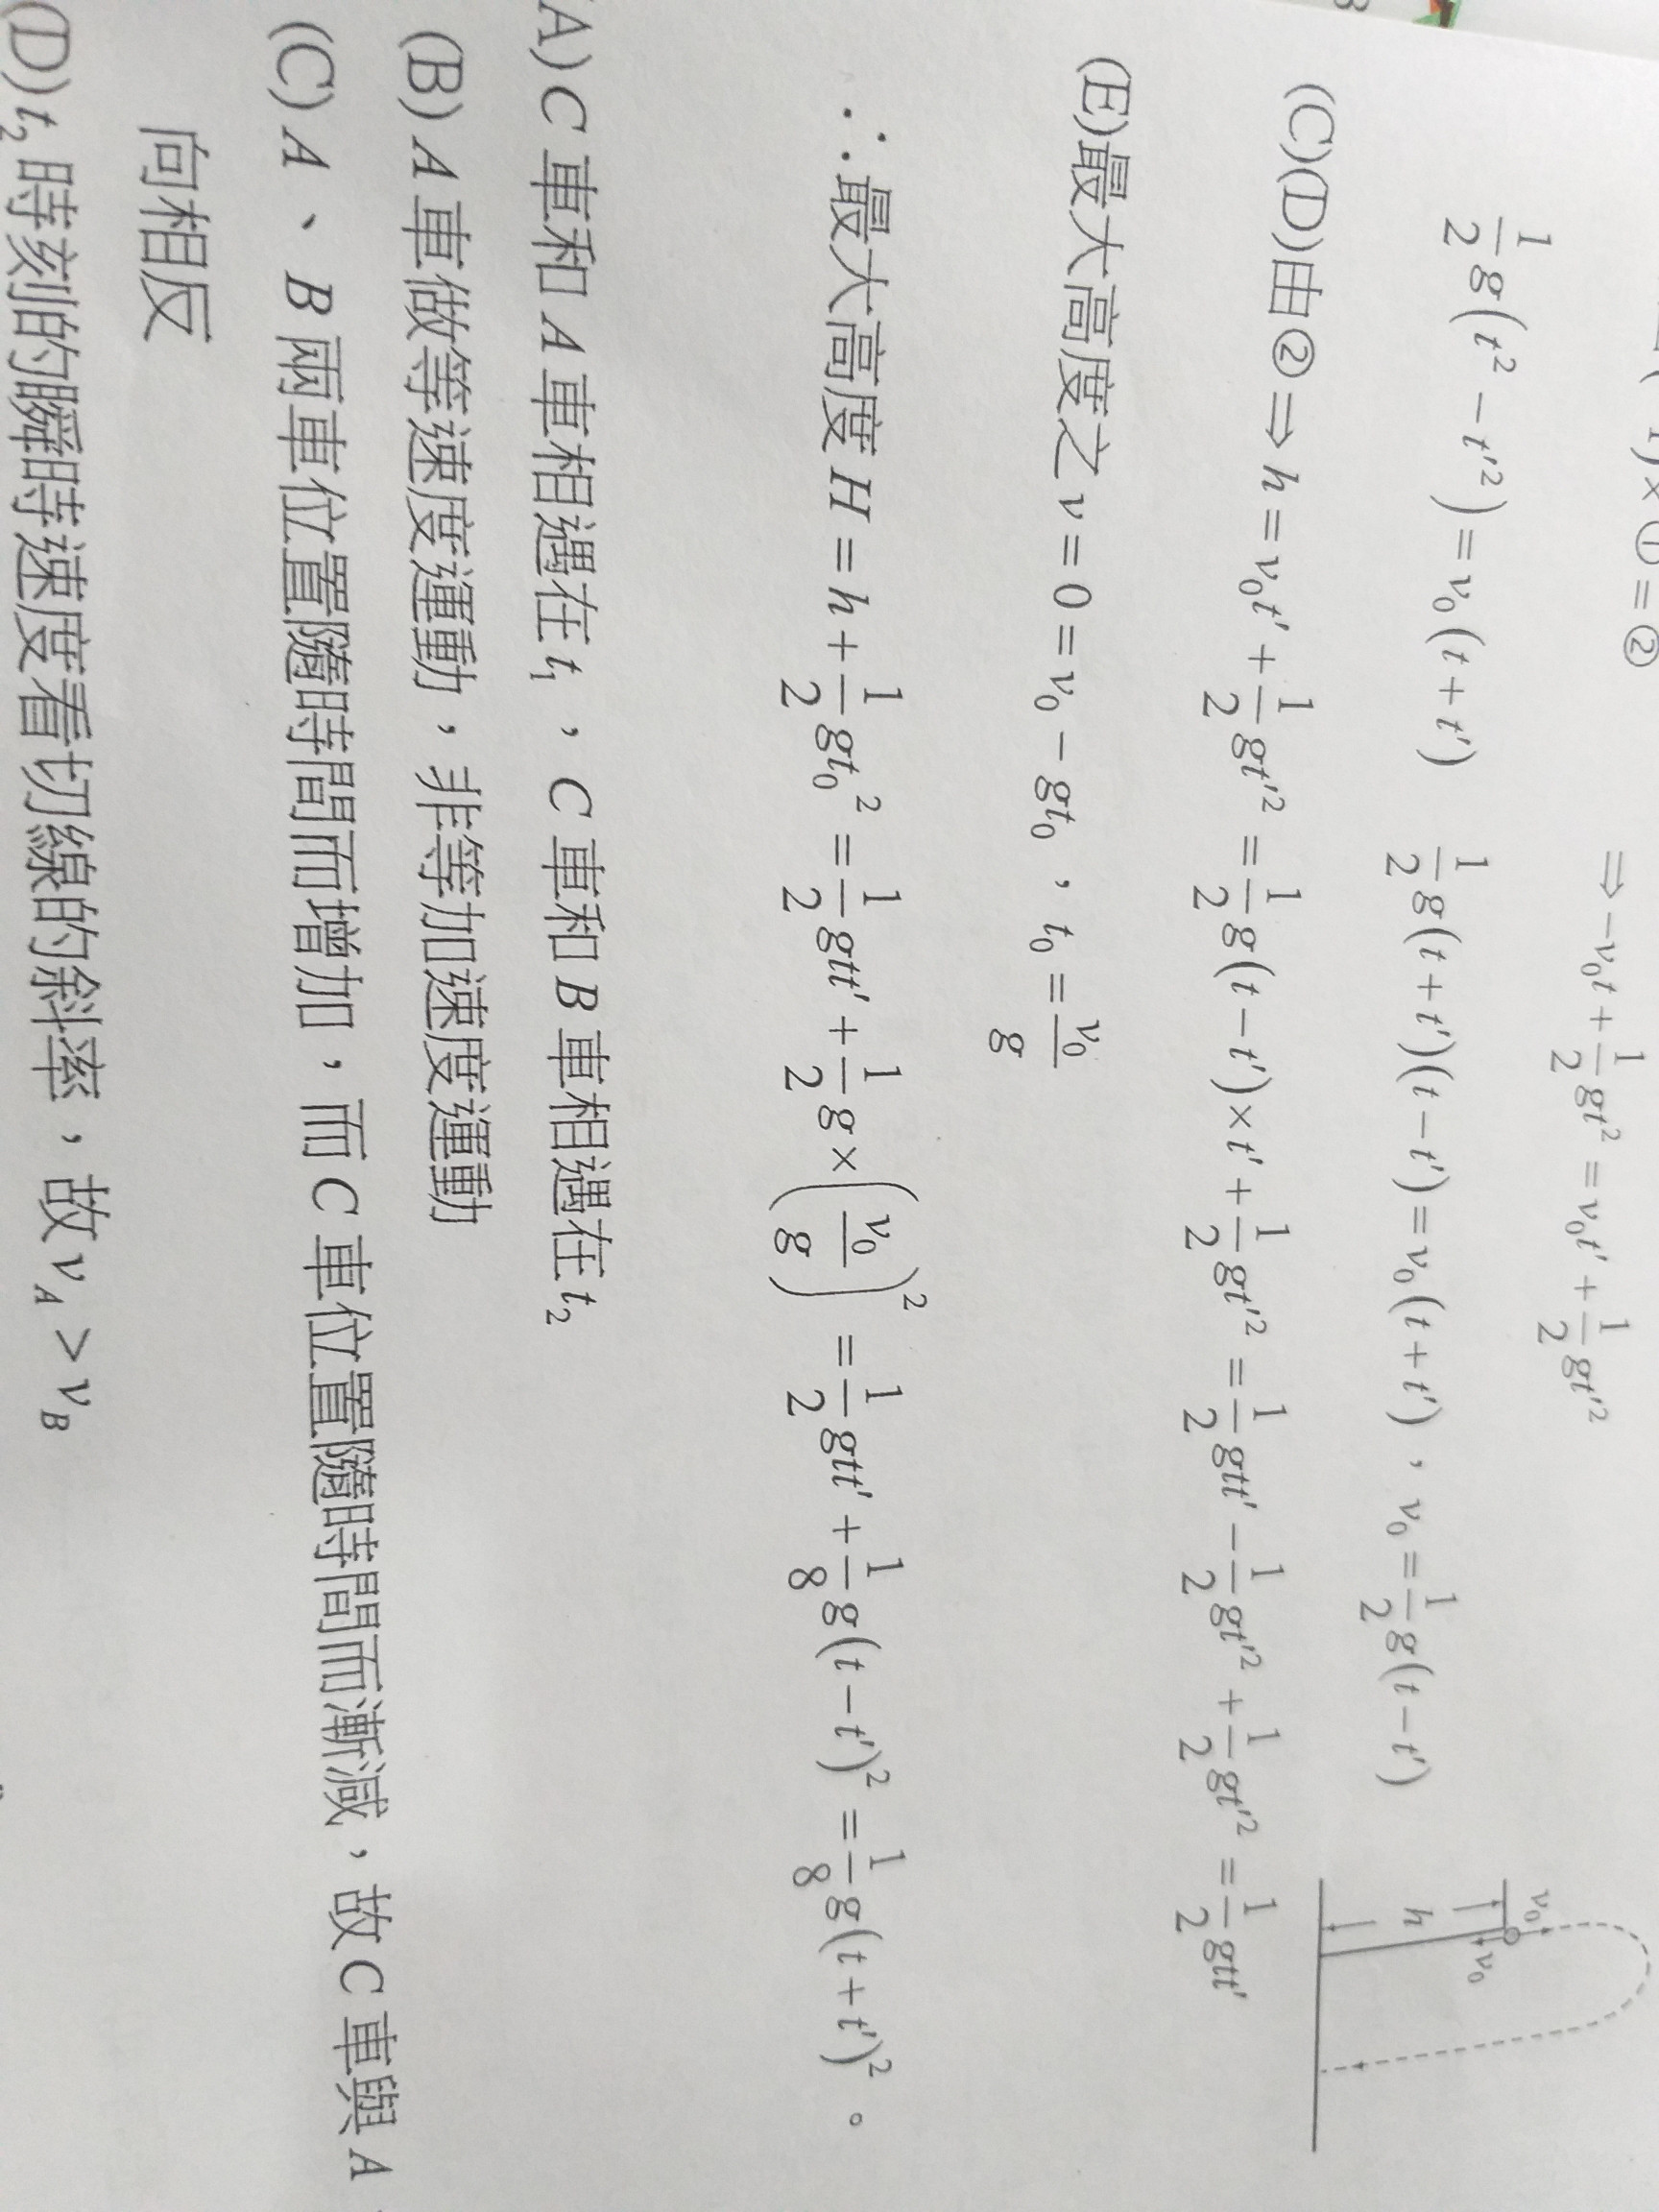 ① = ②
⇒ -v₀t + 1/2 gt² = v₀t' + 1/2 gt'²
1/2 g(t² - t'²) = v₀(t + t') 1/2 g(t + t')(t - t') = v₀(t + t')，v₀ = 1/2 g(t - t')
(C)(D)由② ⇒ h = v₀t' + 1/2 gt'² = 1/2 g(t - t') × t' + 1/2 gt'² = 1/2 gtt' - 1/2 gt'² + 1/2 gt'² = 1/2 gtt'
(E)最大高度之 v = 0 = v₀ - gt₀，t₀ = v₀/g
∴最大高度 H = h + 1/2 gt₀² = 1/2 gtt' + 1/2 g × (v₀/g)² = 1/2 gtt' + 1/8 g(t - t')² = 1/8 g(t + t')²。
v₀
v₀
h
A) C 車和 A 車相遇在 t₁，C 車和 B 車相遇在 t₂
(B) A 車做等速度運動，非等加速度運動
(C) A、B 兩車位置隨時間而增加，而 C 車位置隨時間而漸減，故 C 車與 A
向相反
(D) t₂ 時刻的瞬時速度看切線的斜率，故 v_A > v_B